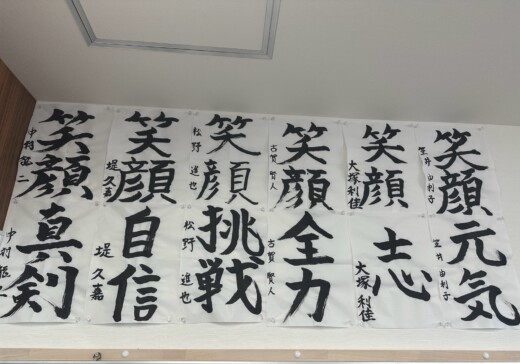 笑顔
井 由利子
笑顔
大塚利佳
笑顔
古賀 賢人
笑顔
松野 進也
笑顔
堤 久嘉
笑顔
中村
元気
井 由利子
志
大塚 利佳
全力
古賀 賢人
挑戦
松野 進也
自信
堤 久嘉
真剣
中村